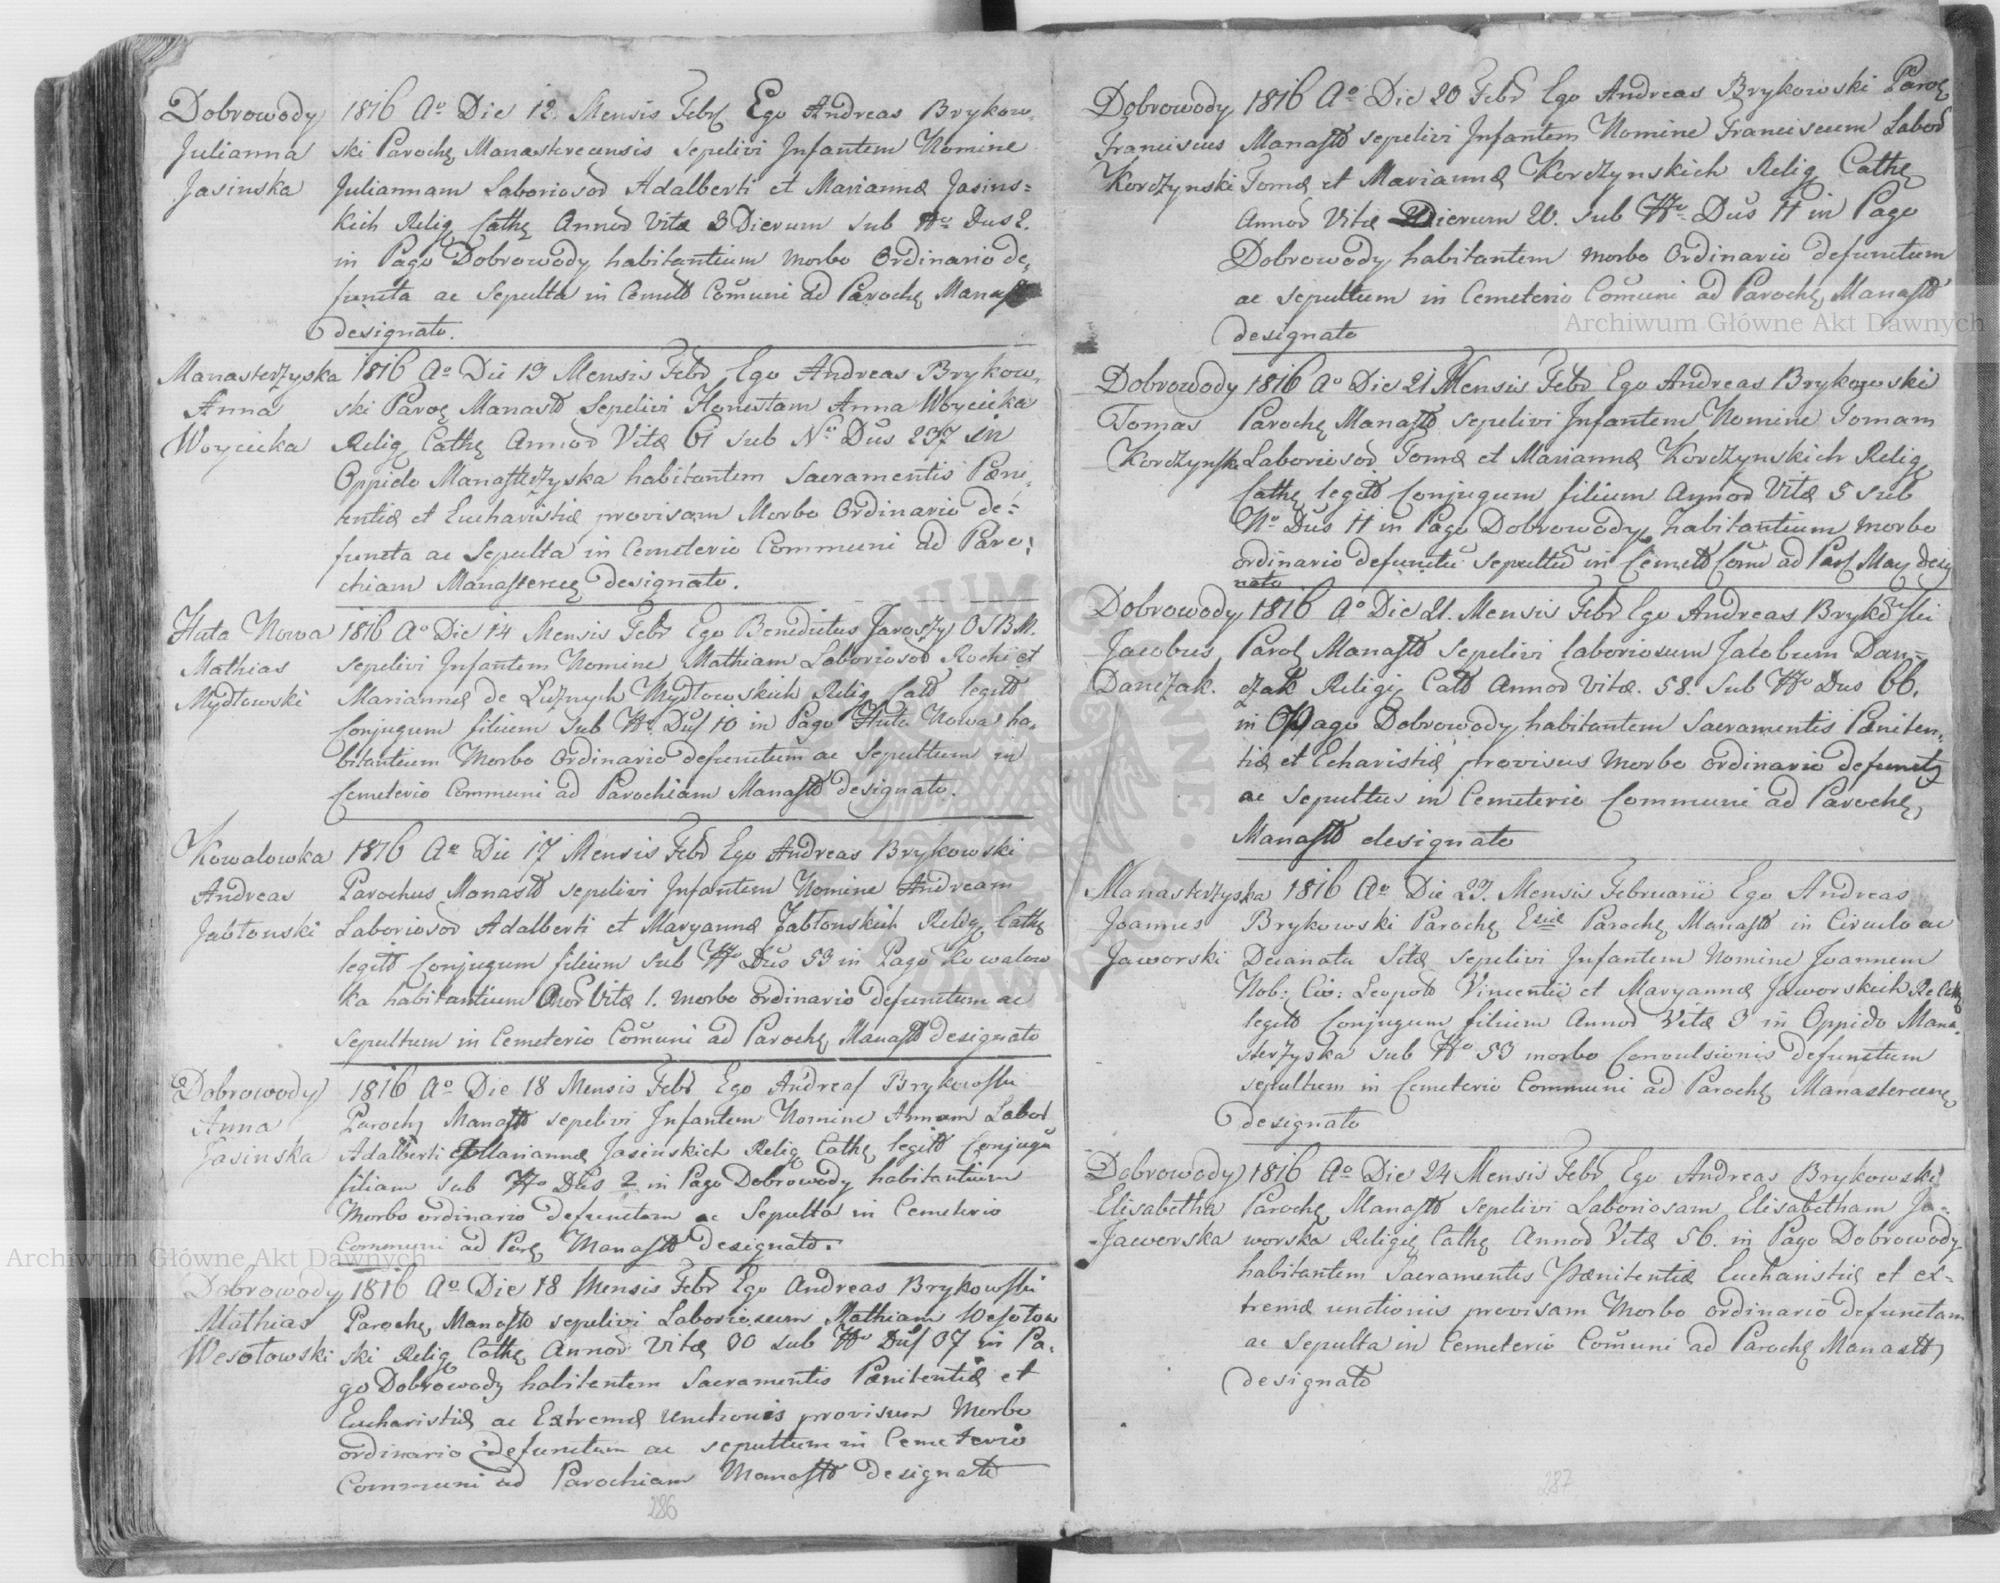 Dobrowody
Julianna
Jasinska
1816 Ao Die 12. Mensis Febr Ego Andreas Brykow,
ski Paroch Manasterecensis sepelivi Infantem Nomine
Juliannam Laboriosor Adalberti et Mariannæ Jasins=
kich Relig Cath Annor Vitæ 3 Dierum sub No Dus 2.
in Pago Dobrowody habitantium morbo Ordinario de,
functa ac Sepulta in Cemett Comuni ad Paroch Manast
designato.
Manasterzyska
Anna
Woycicka
1816 Ao Die 13 Mensis Febr Ego Andreas Brykow,
ski Paroc Manastr Sepelivi Honestam Anna Woycicka
Relig Cath Annor Vitæ 61 sub No Dus 237 in
Oppido Manasterzyska habitantem Sacramentis Pæni,
tentiæ et Eucharistiæ provisam Morbo Ordinario de=
functa ac Sepulta in Cemeterio Communi ad Paro,
chiam Manasterec designato.
Huta Nowa
Mathias
Mydłowski
1816 Ao Die 14 Mensis Febr Ego Benedictus Jaroszy OSBM.
sepelivi Infantem Nomine Mathiam Laboriosor Rochi et
Mariannæ de Luznych Mydłowskich Relig Catt legitt
Conjugum filium sub No Dus 10 in Pago Huta Nowa ha,
bitantium Morbo Ordinario defunctum ac Sepultum in
Cemeterio Communi ad Parochiam Manastt designato.
Kowalowka
Andreas
Jabłonski
1816 Ao Die 17 Mensis Febr Ego Andreas Brykowski
Parochus Monastt sepelivi Infantem Nomine Andream
Laboriosor Adalberti et Maryannæ Jabłonskich Relig Cath
legitt Conjugum filium sub No Dus 53 in Pago Kowalow
ka habitantium Anor Vitæ 1. morbo ordinario defunctum ac
sepultum in Cemeterio Comuni ad Paroch Manastt designato
Dobrowody
Anna
Jasinska
1816 Ao Die 18 Mensis Febr Ego Andreas Brykowski
Paroch Manastt sepelivi Infantem Nomine Annam Labor
Adalberti et Mariannæ Jasinskich Relig Cath legitt Conjugu
filiam sub No Dus 2 in Pago Dobrowody habitantium
Morbo ordinario defunctam ac Sepulta in Cemeterio
Communi ad Par Manastt designato.
Dobrowody
Mathias
Wesołowski
1816 Ao Die 18 Mensis Febr Ego Andreas Brykowski
Paroch Manastt sepelivi Laboriosum Mathiam Wesołow
ski Relig Cath Annor Vitæ 30 sub No Dus 37 in Pa,
go Dobrowody habitantem Sacramentis Pænitentiæ et
Eucharistiæ ac Extremæ Unctionis provisum Morbo
ordinario defunctum ac sepultum in Cemeterio
Communi ad Parochiam Manastt designato
286
Dobrowody
Franciscus
Korczynski
1816 Ao Die 20 Febr Ego Andreas Brykowski Paroc
Manastt sepelivi Infantem Nomine Franciscum Labor
Tomæ et Mariannæ Korczynskich Relig Cath
Annor Vitæ Dierum 20. sub No Dus 11 in Pago
Dobrowody habitantem morbo Ordinario defunctum
ac sepultum in Cemeterio Comuni ad Paroch Manastt
designato
Dobrowody
Tomas
Korczynski
1816 Ao Die 21 Mensis Febr Ego Andreas Brykowski
Paroch Manastt sepelivi Infantem Nomine Tomam
Laboriosor Tomæ et Mariannæ Korczynskich Relig
Cath legitt Conjugum filium Annor Vitæ 5 sub
No Dus 11 in Pago Dobrowody habitantium morbo
ordinario defunctu sepultu in Cemett Comu ad Par Man desig
nato
Dobrowody
Jacobus
Danczak.
1816 Ao Die 21. Mensis Febr Ego Andreas Brykowski
Paroc Manastt sepelivi laboriosum Jacobum Dan=
czak Religi Catt Annor Vitæ. 58. Sub No Dus 66.
in Pago Dobrowody habitantem Sacramentis Pæniten,
tiæ et Echaristiæ provisus Morbo ordinario defunct
ac sepultus in Cemeterio Communi ad Paroch
Manastt designato
Manasterzyska
Joannes
Jaworski
1816 Ao Die 23. Mensis Februarii Ego Andreas
Brykowski Paroch Eccliæ Paroch Manastt in Circulo ac
Decanatu Sitæ sepelivi Infantem Nomine Joannem
Nob: Civ: Leopold Vincentii et Maryannæ Jaworskich Re Cath
legitt Conjugum filium Annor Vitæ 3 in Oppido Mana,
sterzyska sub No 53 morbo Convulsionis defunctum
sepultum in Cemeterio Communi ad Paroch Manasterecen
designato
Dobrowody
Elisabetha
Jaworska
1816 Ao Die 24 Mensis Febr Ego Andreas Brykowski
Paroch Manastt sepelivi Laboriosam Elisabetham Ja=
worska Religi Cath Annor Vitæ 56. in Pago Dobrowody
habitantem Sacramentis Pænitentiæ Eucharistiæ et ex=
tremæ unctionis provisam Morbo ordinario defunctam
ac sepulta in Cemeterio Comuni ad Paroch Manastt
designato
287
Archiwum Główne Akt Dawnych
Archiwum Główne Akt Dawnych